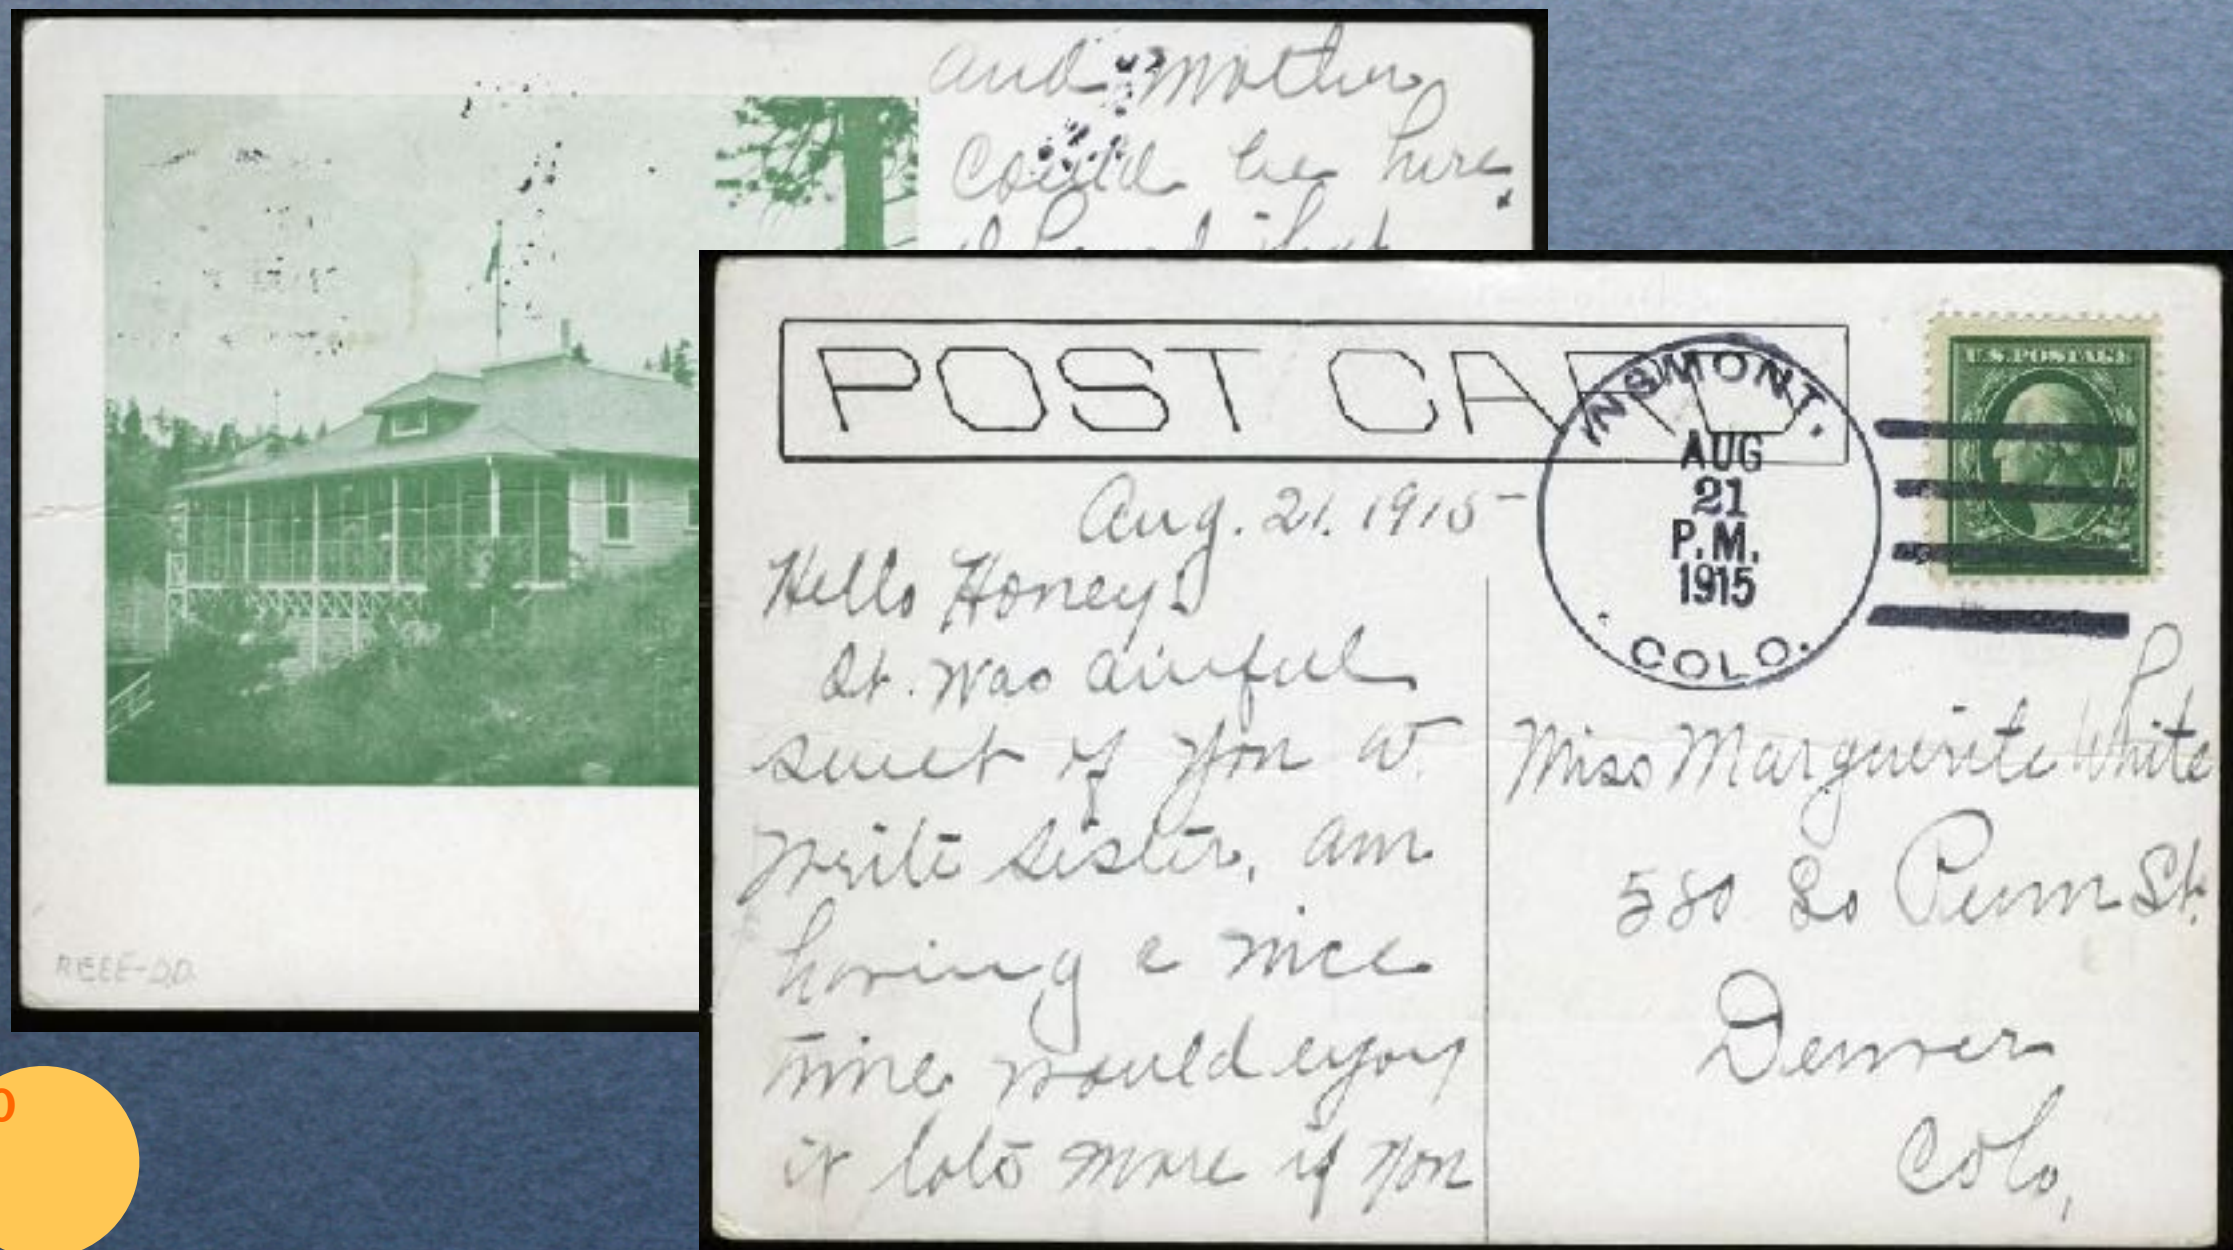 and mother
could be here.
POST CARD
U.S. POSTAGE
INSMONT.
AUG
21
P.M.
1915
COLO.
Aug. 21. 1915
Hello Honey!
It. was awful
sweet of you to
write sister, am
having a nice
time would enjoy
it lots more if you
Miss Marguerite White
580 So Penn St.
Denver
Colo,